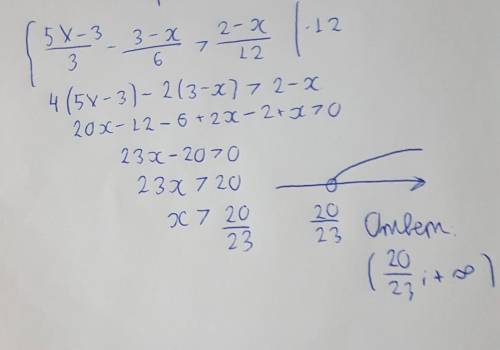 { (5x-3)/3 - (3-x)/6 > (2-x)/12 | ·12
4(5x-3)-2(3-x)>2-x
20x-12-6+2x-2+x>0
23x-20>0
23x>20
x > 20/23
20/23
Ответ.
(20/23; +∞)